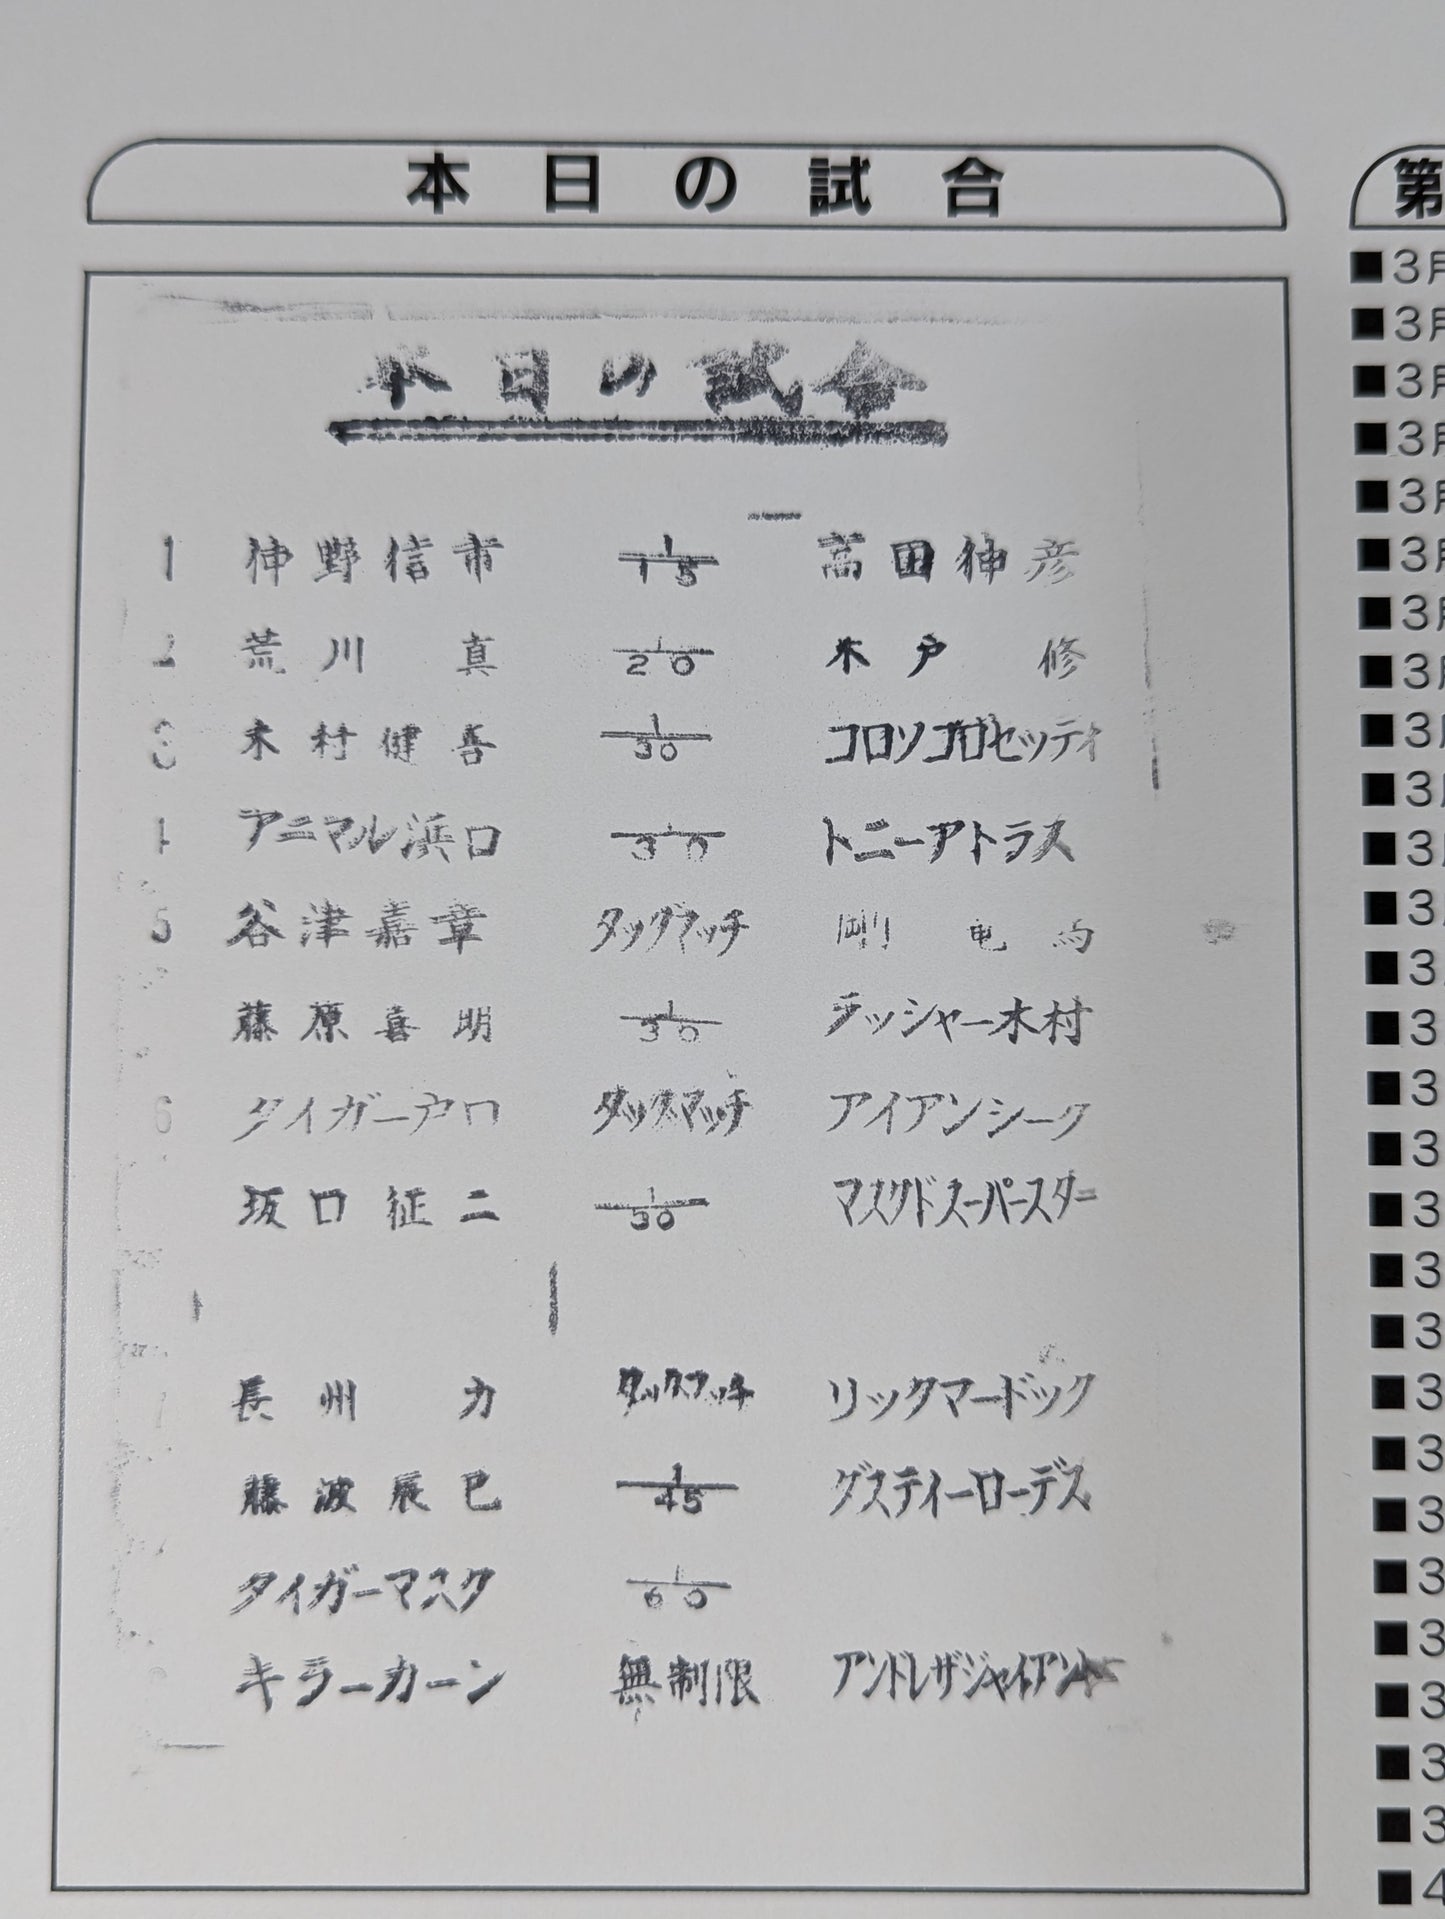 本日の試合
本日の試合
1 仲野信市 1/15 高田伸彦
2 荒川 真 1/20 木戸 修
3 木村健吾 1/30 コロソコロセッティ
4 アニマル浜口 1/30 トニーアトラス
5 谷津嘉章 タッグマッチ 剛 竜 馬
藤原喜明 1/30 ラッシャー木村
6 タイガー戸口 タッグマッチ アイアンシーク
坂口征二 1/30 マスクドスーパースター
長州 力 タッグマッチ リックマードック
藤波辰巳 1/45 ダスティーローデス
タイガーマスク 1/60
キラーカーン 無制限 アンドレザジャイアント
第
■3月
■3月
■3月
■3月
■3月
■3月
■3月
■3月
■3月
■3月
■3月
■3
■3
■3
■3
■3
■3
■3
■3
■3
■3
■3
■3
■3
■3
■3
■3
■4